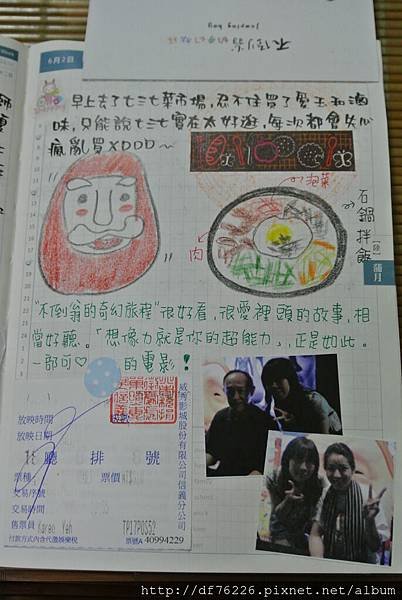 不倒翁
jumping boy
6月2日
早上去了七三七菜市場,忍不住買了愛玉和滷
味,只能說七三七實在太好逛,每次都會失心
瘋亂買XDDD~
泡菜
石鍋拌飯
肉
蒲月
"不倒翁的奇幻旅程"很好看,很愛裡頭的故事,相
當好聽。「想像力就是你的超能力」,正是如此。
一部可♡的電影!
放映時間
放映日期
廳 排 號
票種 票價
交易序號
交易時間
售票員 Karen Yeh TP17POS52
付款方式內含代徵娛樂稅 票號A 40994229
威秀影城股份有限公司信義分公司
http://df76226.pixnet.net/album